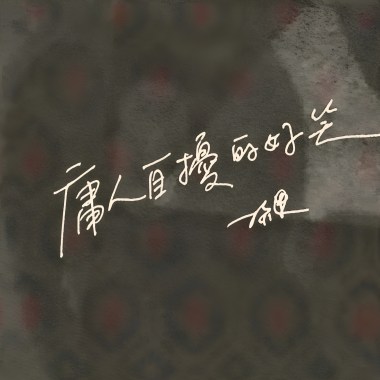 庸人自擾的好笑